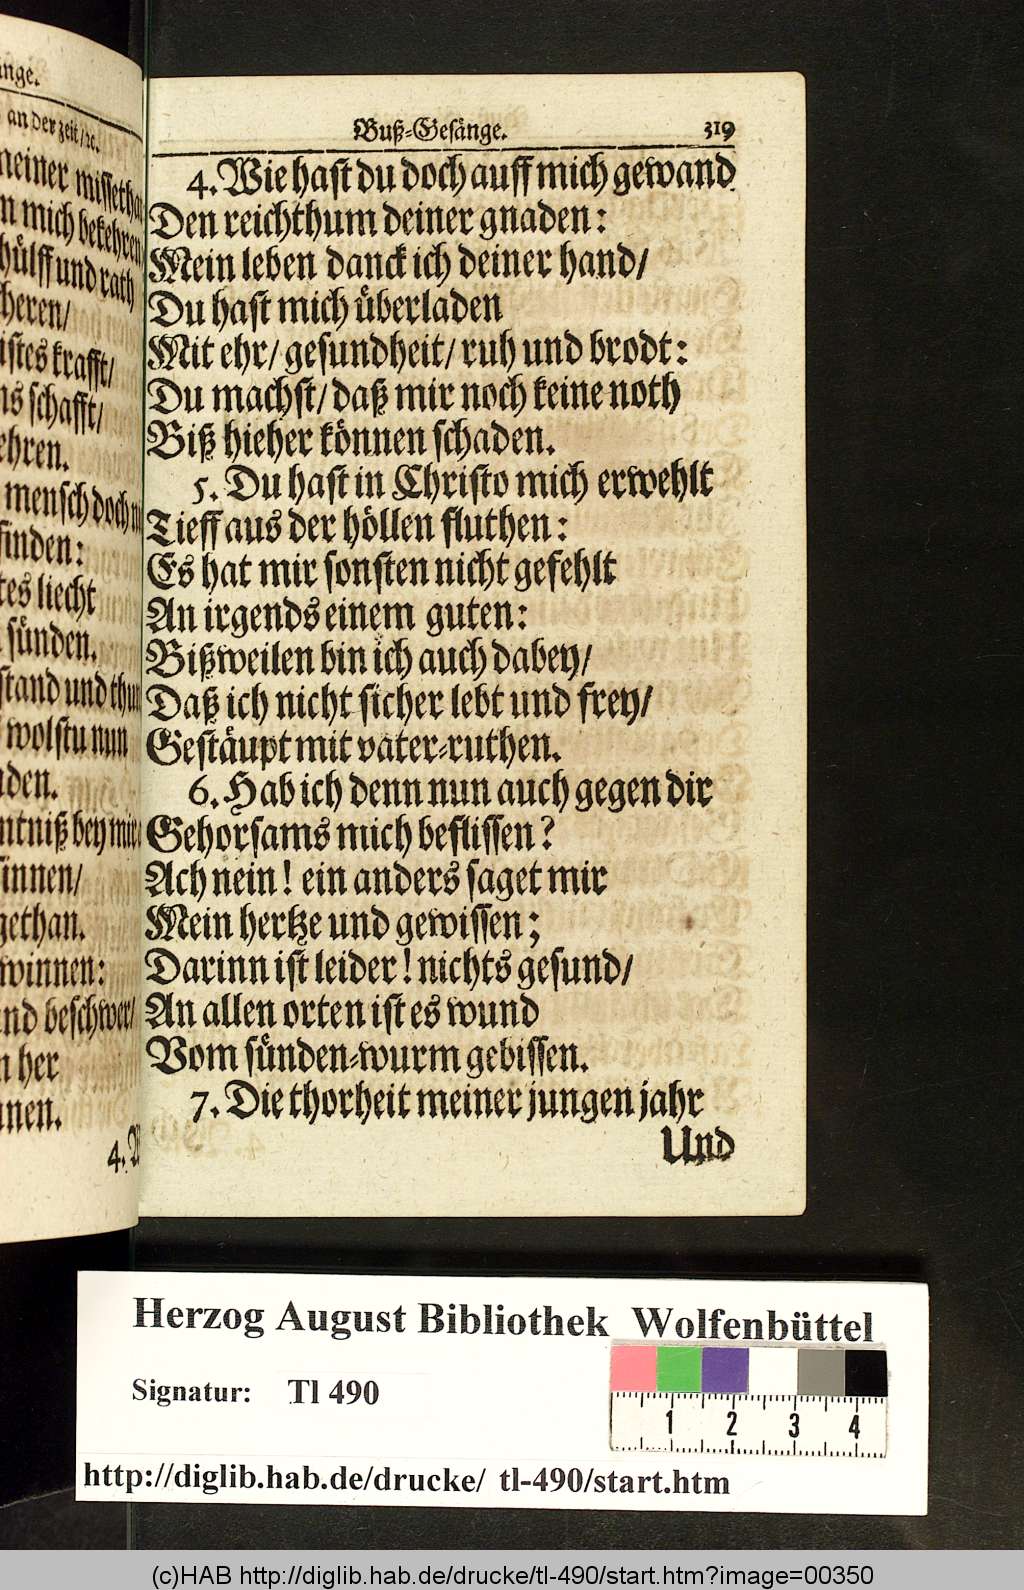 änge.
an der zeit/ ꝛc.
meiner missethat
mich bekehren
hülff und rath
istes krafft/
schafft/
mensch doch
finden:
liecht
sünden.
stand und
wolstu nun
bey mir
sinnen/
gethan.
und beschwer/
her
4.
Buß-Gesänge. 319
4. Wie hast du doch auff mich gewand
Den reichthum deiner gnaden:
Mein leben danck ich deiner hand/
Du hast mich überladen
Mit ehr/ gesundheit/ ruh und brodt:
Du machst/ daß mir noch keine noth
Biß hieher können schaden.
5. Du hast in Christo mich erwehlt
Tieff aus der höllen fluthen:
Es hat mir sonsten nicht gefehlt
An irgends einem guten:
Bißweilen bin ich auch dabey/
Daß ich nicht sicher lebt und frey/
Gestäupt mit vater-ruthen.
6. Hab ich denn nun auch gegen dir
Gehorsams mich beflissen?
Ach nein! ein anders saget mir
Mein hertze und gewissen;
Darinn ist leider! nichts gesund/
An allen orten ist es wund
Vom sünden-wurm gebissen.
7. Die thorheit meiner jungen jahr
Und
Herzog August Bibliothek Wolfenbüttel
Signatur: Tl 490
1 2 3 4
http://diglib.hab.de/drucke/ tl-490/start.htm
(c)HAB http://diglib.hab.de/drucke/tl-490/start.htm?image=00350